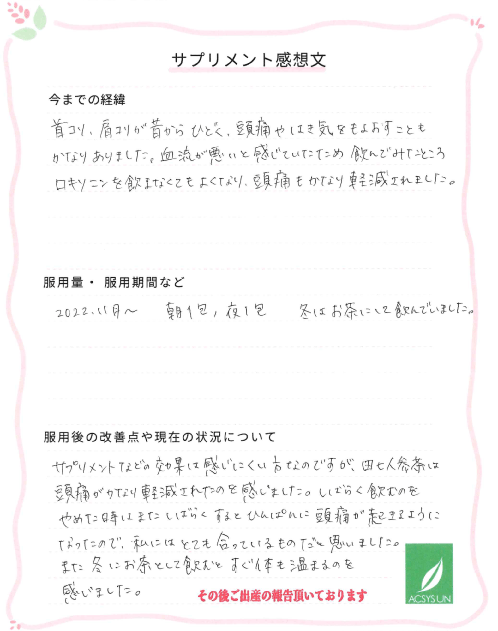 サプリメント感想文
今までの経緯
首コリ、肩コリが昔からひどく、頭痛やはき気をもよおすことも
かなりありました。血流が悪いと感じていたため 飲んでみたところ
ロキソニンを飲まなくてもよくなり、頭痛もかなり軽減されました。
服用量・ 服用期間など
2022.11月〜 朝1包, 夜1包 冬はお茶にして飲んでいました。
服用後の改善点や現在の状況について
サプリメントなどの効果は感じにくい方なのですが、田七人参茶は
頭痛がかなり軽減されたのを感じました。しばらく飲むのを
やめた時はまたしばらくするとひんぱんに頭痛が起きるように
なったので、私にはとても合っているものだと思いました。
また 冬にお茶として飲むと すぐ体も温まるのを
感じました。
その後ご出産の報告頂いております
ACSYSUN